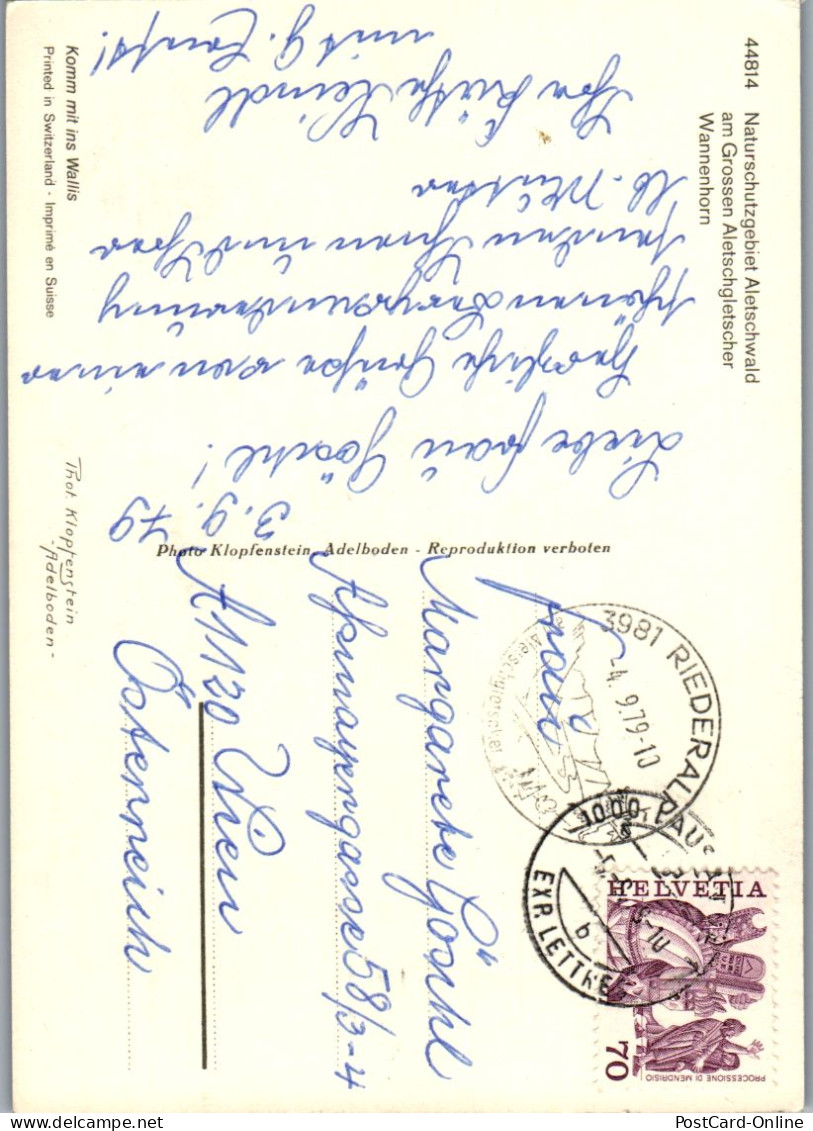 44814 Naturschutzgebiet Aletschwald
am Grossen Aletschgletscher
Wannenhorn
3.9.79
Liebe Frau Göschl!
Herzliche Grüße von einer
schönen Bergwanderung
senden Ihnen und Ihrer
lb. Mutter
Ihre Käthe
mit g.
Komm mit ins Wallis
Printed in Switzerland - Imprimé en Suisse
Phot. Klopfenstein
-Adelboden-
Photo Klopfenstein, Adelboden - Reproduktion verboten
Frau
Margarete Göschl
58/3-4
A 1130 Wien
Österreich
3981 RIEDERALP
-4.9.79-10
Aletschgletscher
1000 LAUSANNE
EXP. LETTRES
b
HELVETIA
70
PROCESSIONE DI MENDRISIO
PostCard-Online